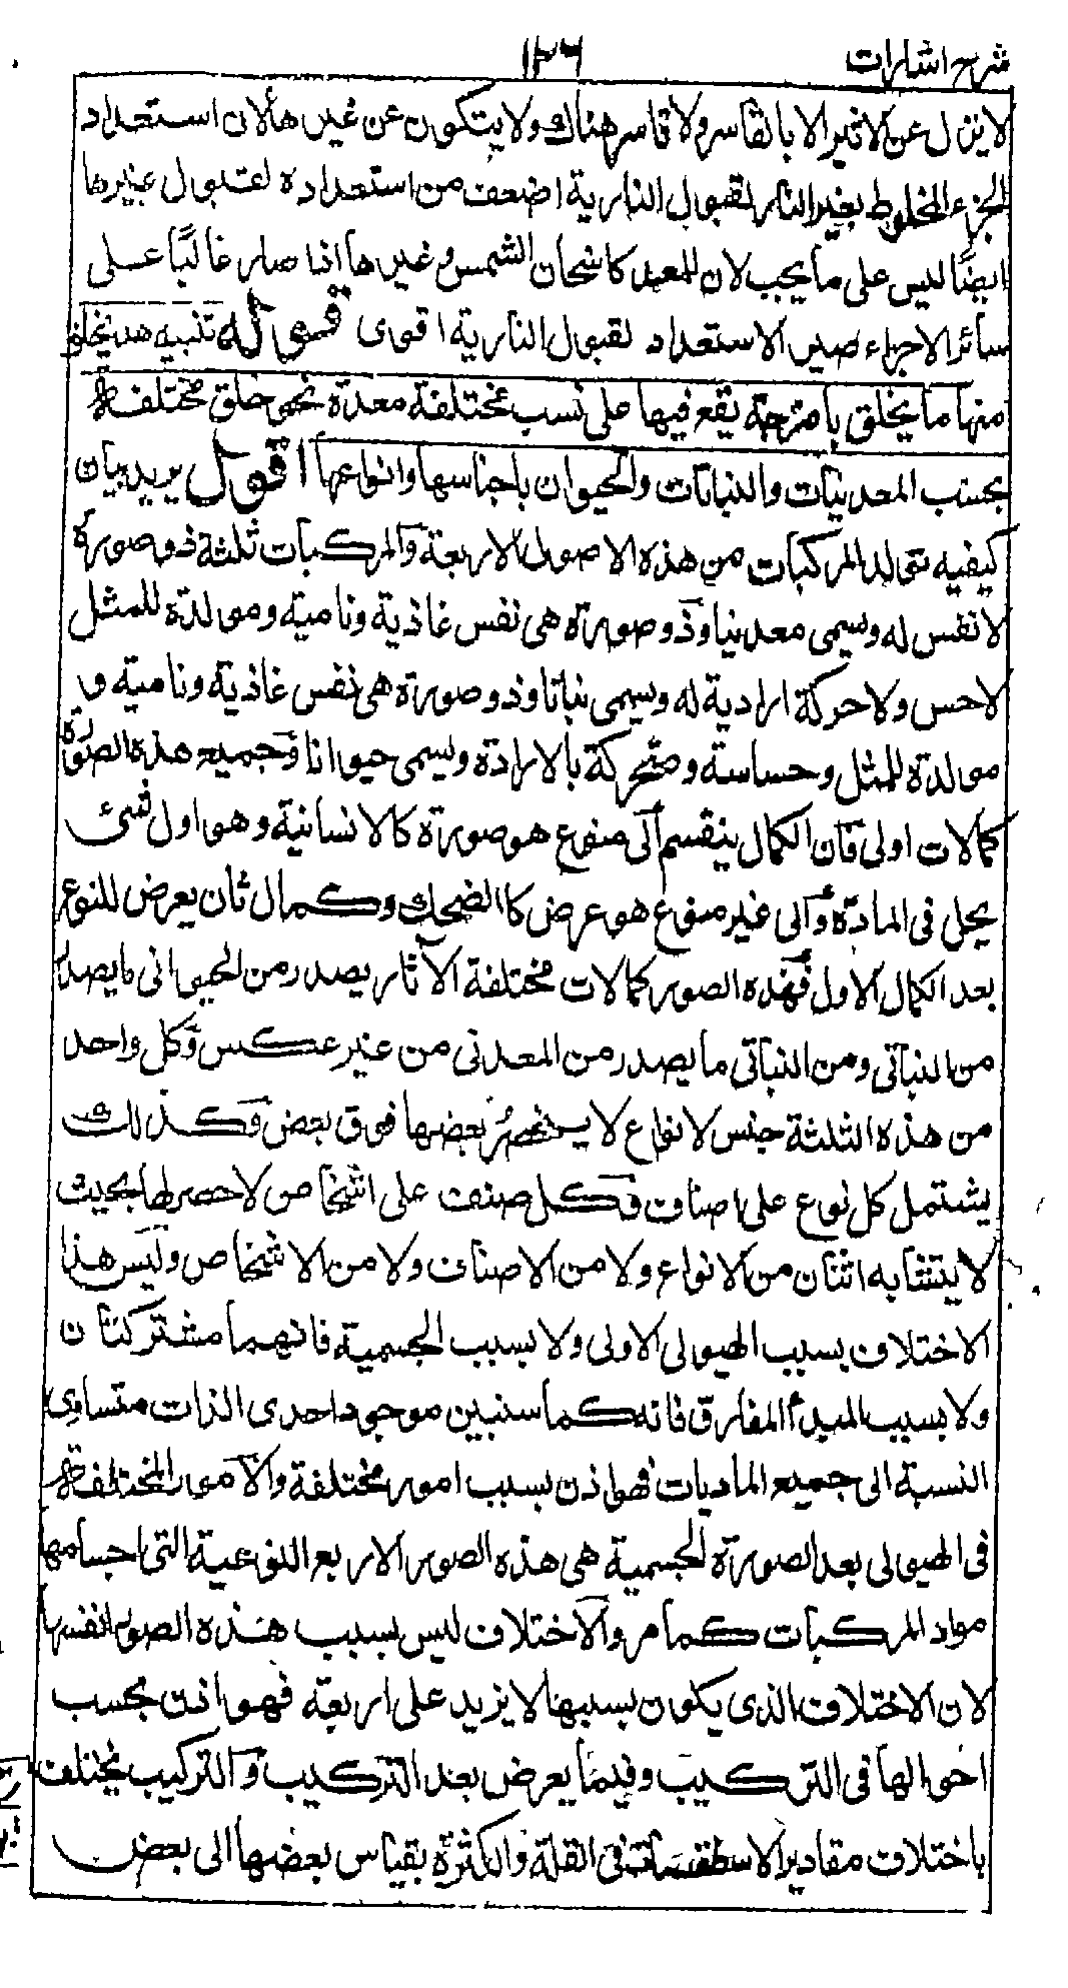 شرح اشارات
١٢٦
لا ينزل عن الاثير الا بالقاسر ولا قاسر هناك ولا يتكون عن غيرها لان استعداد
الجزء المخلوط بغير النار لقبول النارية اضعف من استعداده لقبول غيرها
ايضًا ليس على ما يجب لان المعد كاسخان الشمس وغيرها اذا صار غالبًا على
سائر الاجزاء صير الاستعداد لقبول النارية اقوى قوله تنبيه هذه يخلق
منها ما يخلق بامزجة يقع فيها على نسب مختلفة معدة نحو خلق مختلفة
بحسب المعدنيات والنباتات والحيوان باجناسها وانواعها اقول يريد بيان
كيفيه تولد المركبات من هذه الاصول الاربعة والمركبات ثلثة ذو صورة
لا نفس له ويسمى معدنيا وذو صورة هى نفس غاذية ونامية ومولدة للمثل
لا حس ولا حركة ارادية له ويسمى نباتا وذو صورة هى نفس غاذية ونامية و
مولدة للمثل وحساسة ومتحركة بالارادة ويسمى حيوانا وجميع هذه الصور
كمالات اولى فان الكمال ينقسم الى منوع هو صورة كالانسانية وهو اول شئ
يحل فى المادة والى غير منوع هو عرض كالضحك وكمال ثان يعرض للنوع
بعد الكمال الاول فهذه الصور كمالات مختلفة الآثار يصدر من الحيوانى ما يصدر
من النباتى ومن النباتى ما يصدر من المعدنى من غير عكس وكل واحد
من هذه الثلثة جنس لانواع لا ينحصر بعضها فوق بعض وكذلك
يشتمل كل نوع على اصناف وكل صنف على اشخاص لا حصر لها بحيث
لا يتشابه اثنان من الانواع ولا من الاصناف ولا من الاشخاص وليس هذا
الاختلاف بسبب الهيولى الاولى ولا بسبب الجسمية فانهما مشتركتان
ولا بسبب المبدأ المفارق فانه كما سنبين موجود احدى الذات متساوى
النسبة الى جميع الماديات فهو اذن بسبب امور مختلفة والامور المختلفة
فى الهيولى بعد الصورة الجسمية هى هذه الصور الاربع النوعية التى اجسامها
مواد المركبات كما مر والاختلاف ليس بسبب هذه الصور انفسها
لان الاختلاف الذى يكون بسببها لا يزيد على اربعة فهو اذن بحسب
احوالها فى التركيب وفيما يعرض بعد التركيب والتركيب يختلف
باختلاف مقادير الاسطقسات فى القلة والكثرة بقياس بعضها الى بعض